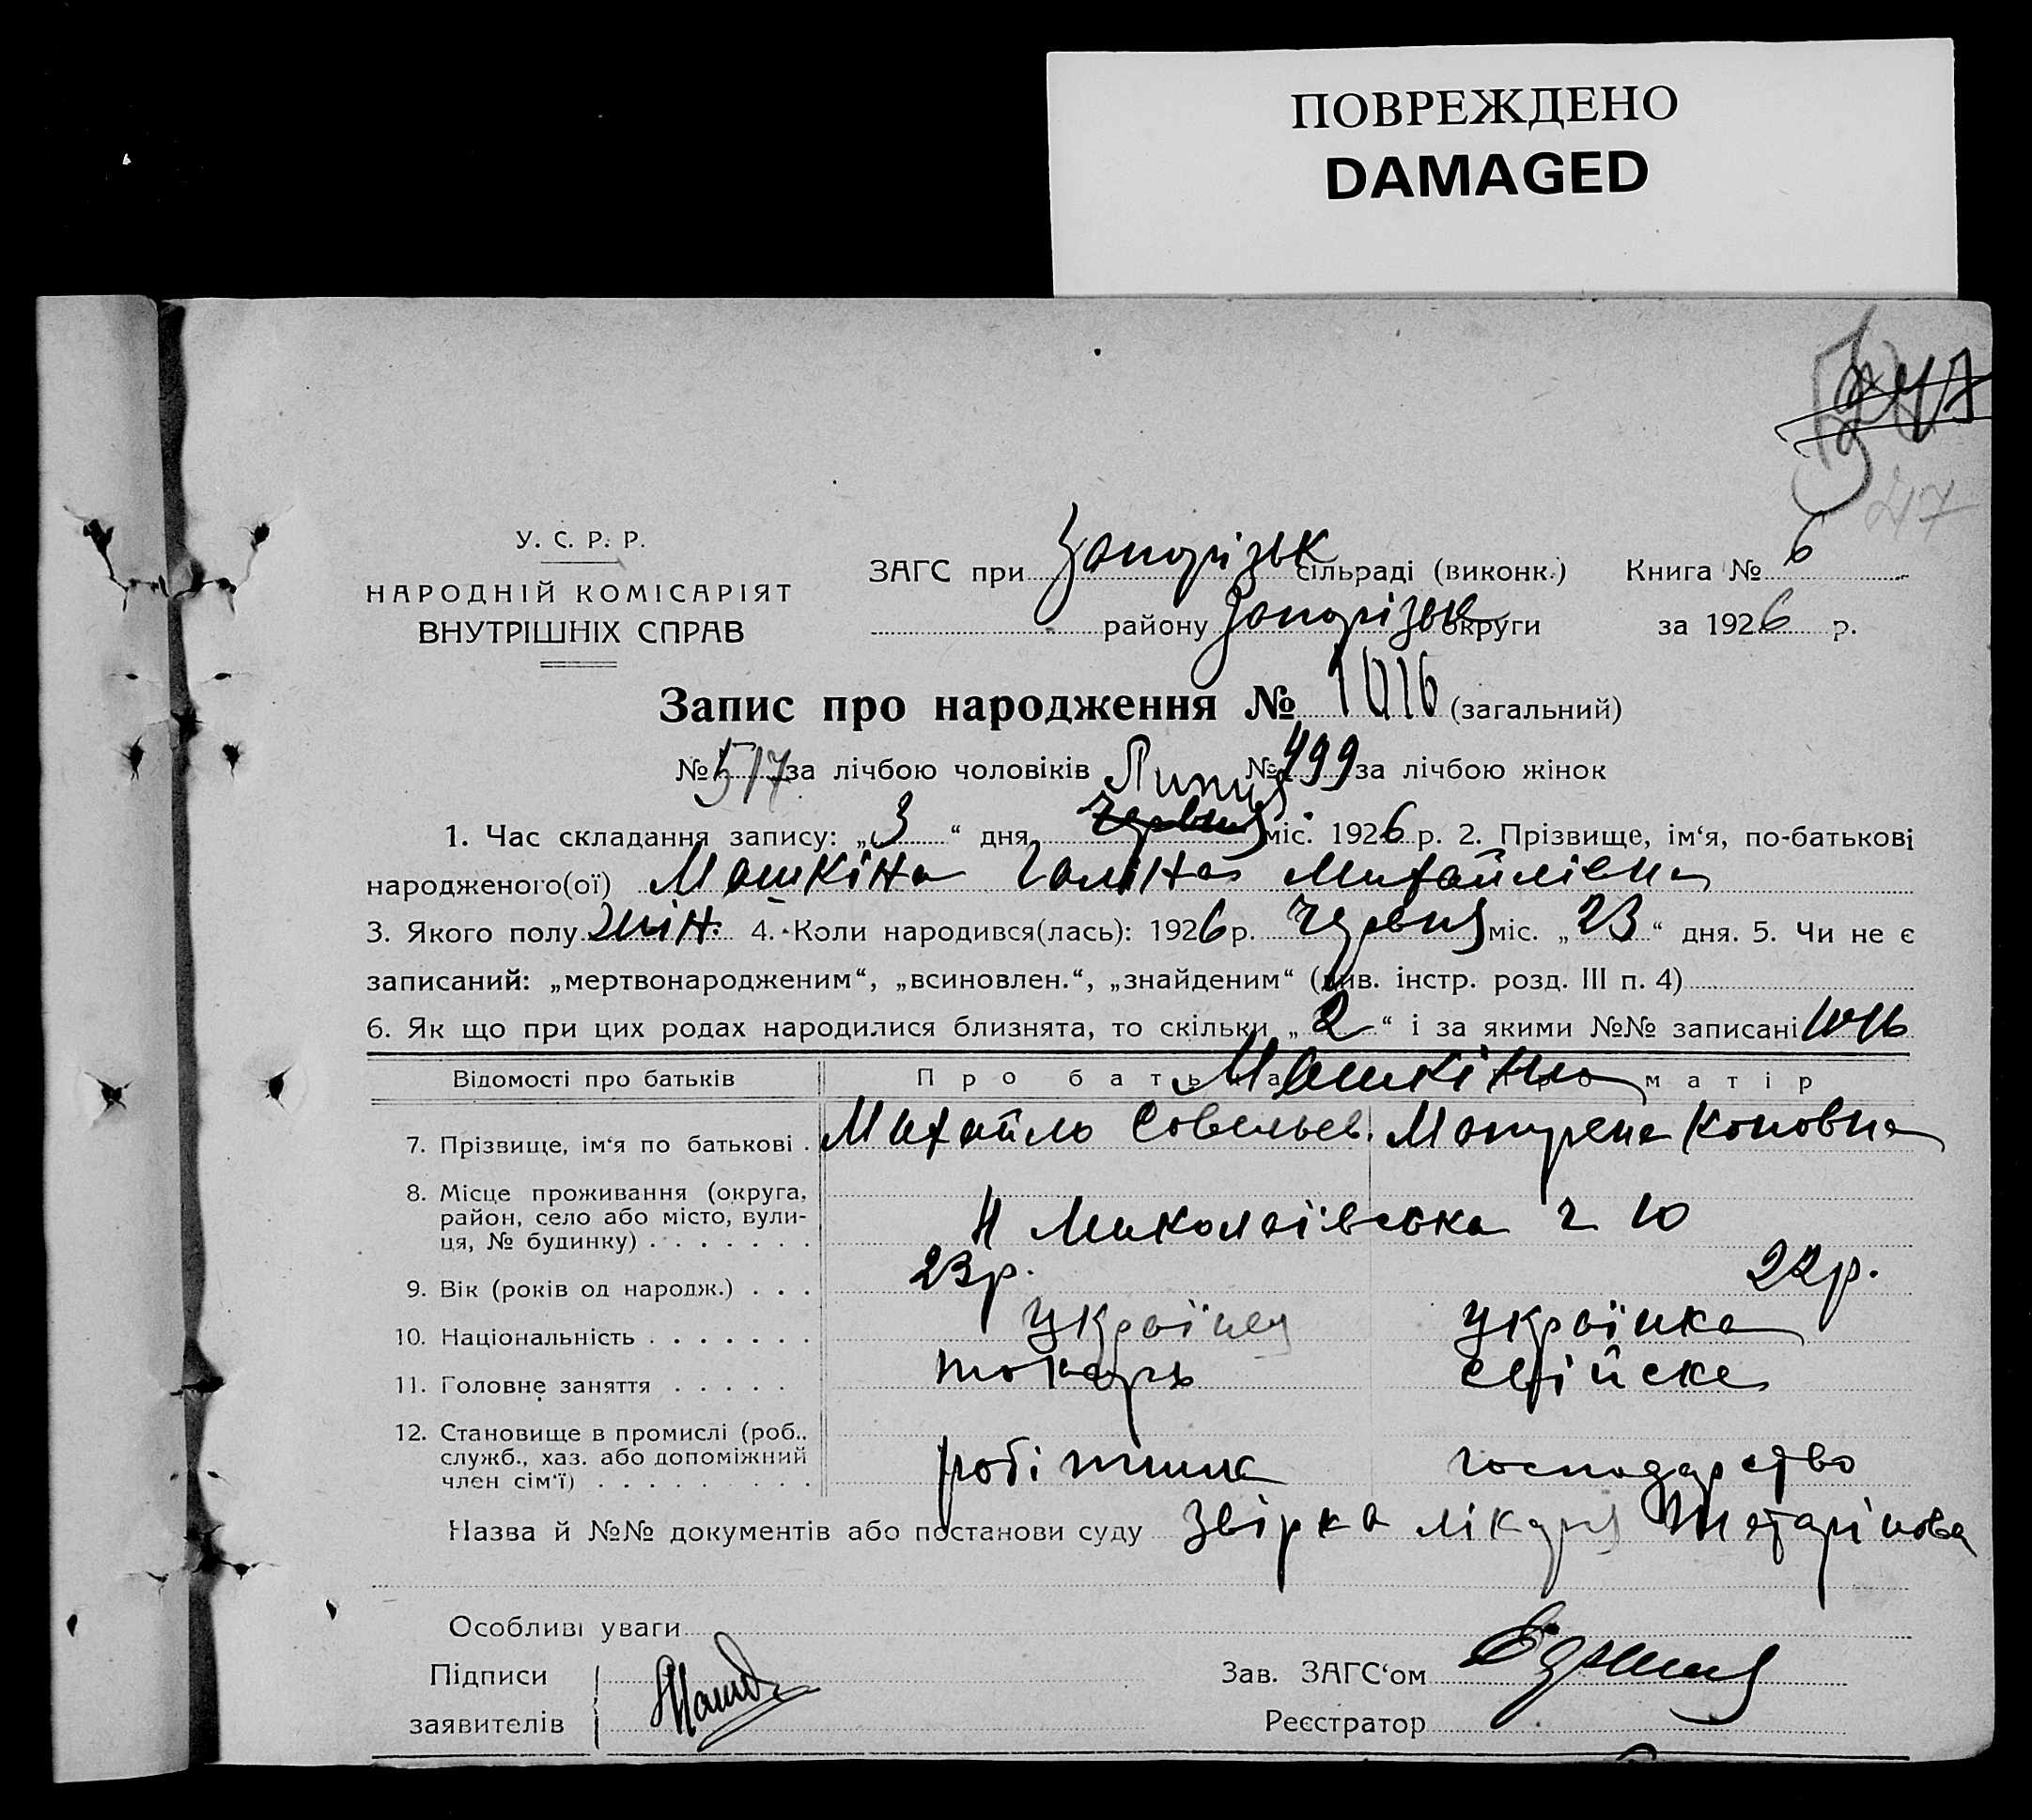 ПОВРЕЖДЕНО
DAMAGED
47
У. С. Р. Р.
НАРОДНІЙ КОМІСАРІЯТ
ВНУТРІШНІХ СПРАВ
ЗАГС при Запорізьк сільраді (виконк.) Книга № 6
району Запорізьк округи за 1926 р.
Запис про народження № 1016 (загальний)
№ 517 за лічбою чоловіків № 499 за лічбою жінок
Липня
1. Час складання запису: „3“ дня червня міс. 1926 р. 2. Прізвище, ім‘я, по-батькові
народженого(ої) Машкіна Галіна Михайлівна
3. Якого полу жін. 4. Коли народився(лась): 1926 р. червня міс. „23“ дня. 5. Чи не є
записаний: „мертвонародженим“, „всиновлен.“, „знайденим“ (див. інстр. розд. III п. 4)
6. Як що при цих родах народилися близнята, то скільки „2“ і за якими №№ записані 1016
Відомості про батьків Про батька Про матір
Машкіни
7. Прізвище, ім‘я по батькові . Михайло Савельев. Мотрена
8. Місце проживання (округа,
район, село або місто, вули-
ця, № будинку) . . . . . . . Миколаївська 2 10
9. Вік (років од народж.) . . . 23р. 22р.
10. Національність . . . . . . . українец українка
11. Головне заняття . . . . . токарь свійске
12. Становище в промислі (роб.,
служб., хаз. або допоміжний
член сім‘ї) . . . . . . . . . робітник господарство
Назва й №№ документів або постанови суду Звірка лікаря
Особливі уваги
Підписи
заявителів
Зав. ЗАГС‘ом
Реєстратор